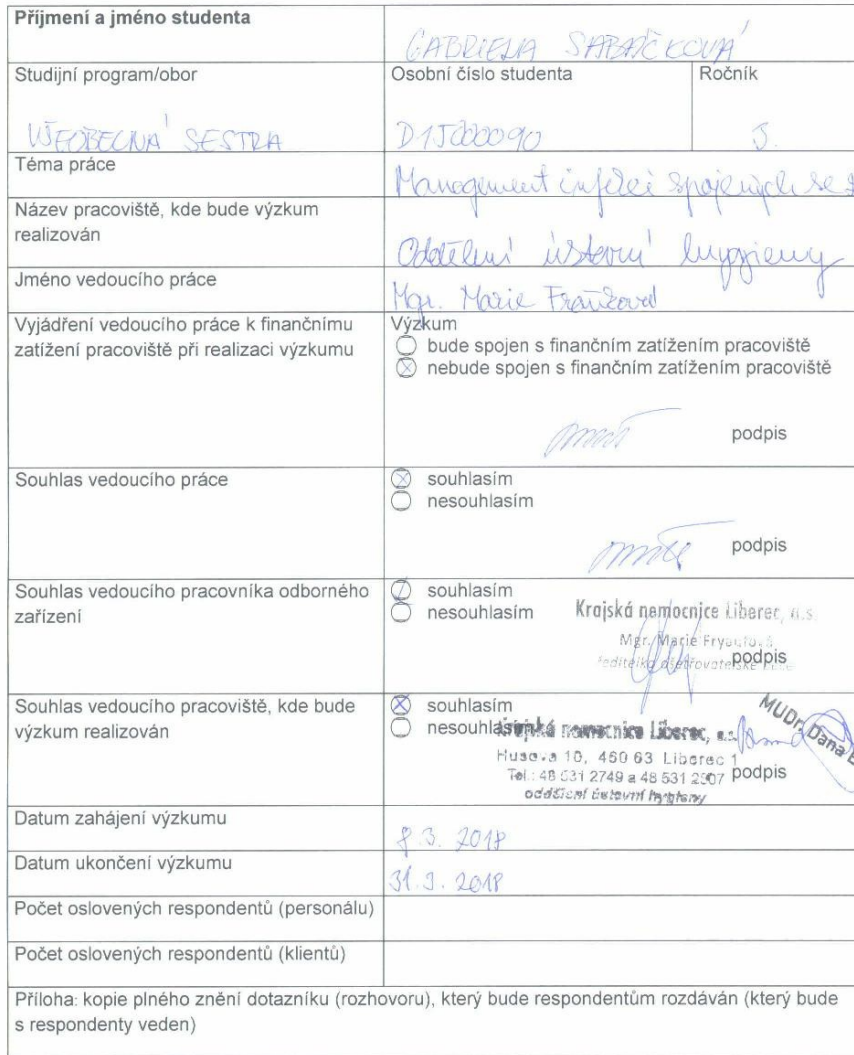 Příjmení a jméno studenta
GABRIELA SABAČKOVÁ
Studijní program/obor
Osobní číslo studenta
Ročník
VŠEOBECNÁ SESTRA
D15000090
3.
Téma práce
Management infekcí spojených se
Název pracoviště, kde bude výzkum
realizován
Oddělení ústavní hygieny
Jméno vedoucího práce
Mgr. Marie Froňková
Vyjádření vedoucího práce k finančnímu
zatížení pracoviště při realizaci výzkumu
Výzkum
bude spojen s finančním zatížením pracoviště
nebude spojen s finančním zatížením pracoviště
podpis
Souhlas vedoucího práce
souhlasím
nesouhlasím
podpis
Souhlas vedoucího pracovníka odborného
zařízení
souhlasím
nesouhlasím
Krajská nemocnice Liberec, a.s.
Mgr. Marie Fryaufová
ředitelka ošetřovatelské péče
podpis
Souhlas vedoucího pracoviště, kde bude
výzkum realizován
souhlasím
nesouhlasím
Krajská nemocnice Liberec, a.s.
MUDr. Dana
Husova 10, 460 63 Liberec 1
Tel.: 48 531 2749 a 48 531 2507
podpis
oddělení ústavní hygieny
Datum zahájení výzkumu
8.3. 2018
Datum ukončení výzkumu
31.3. 2018
Počet oslovených respondentů (personálu)
Počet oslovených respondentů (klientů)
Příloha: kopie plného znění dotazníku (rozhovoru), který bude respondentům rozdáván (který bude
s respondenty veden)